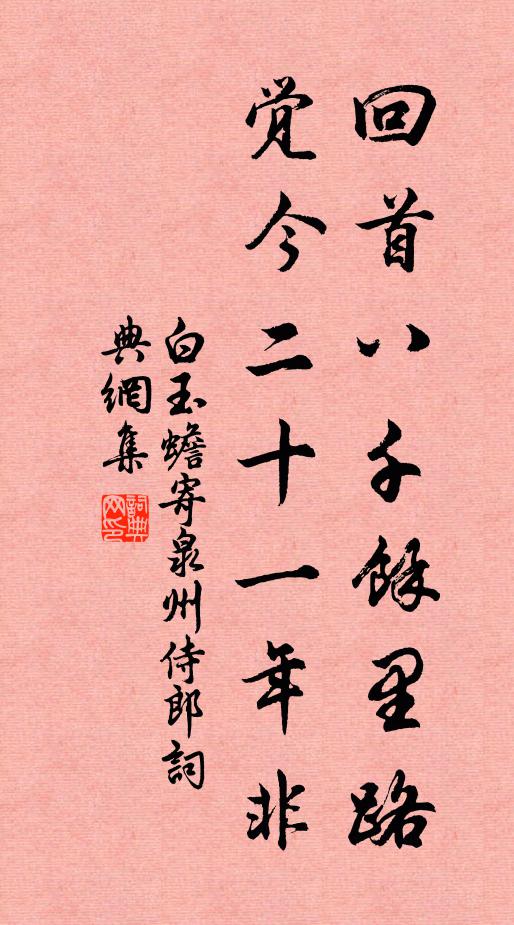 回首八千餘里路
覚今二十一年非
白玉蟾寄泉州侍郎詞
典網集
詞典
网印